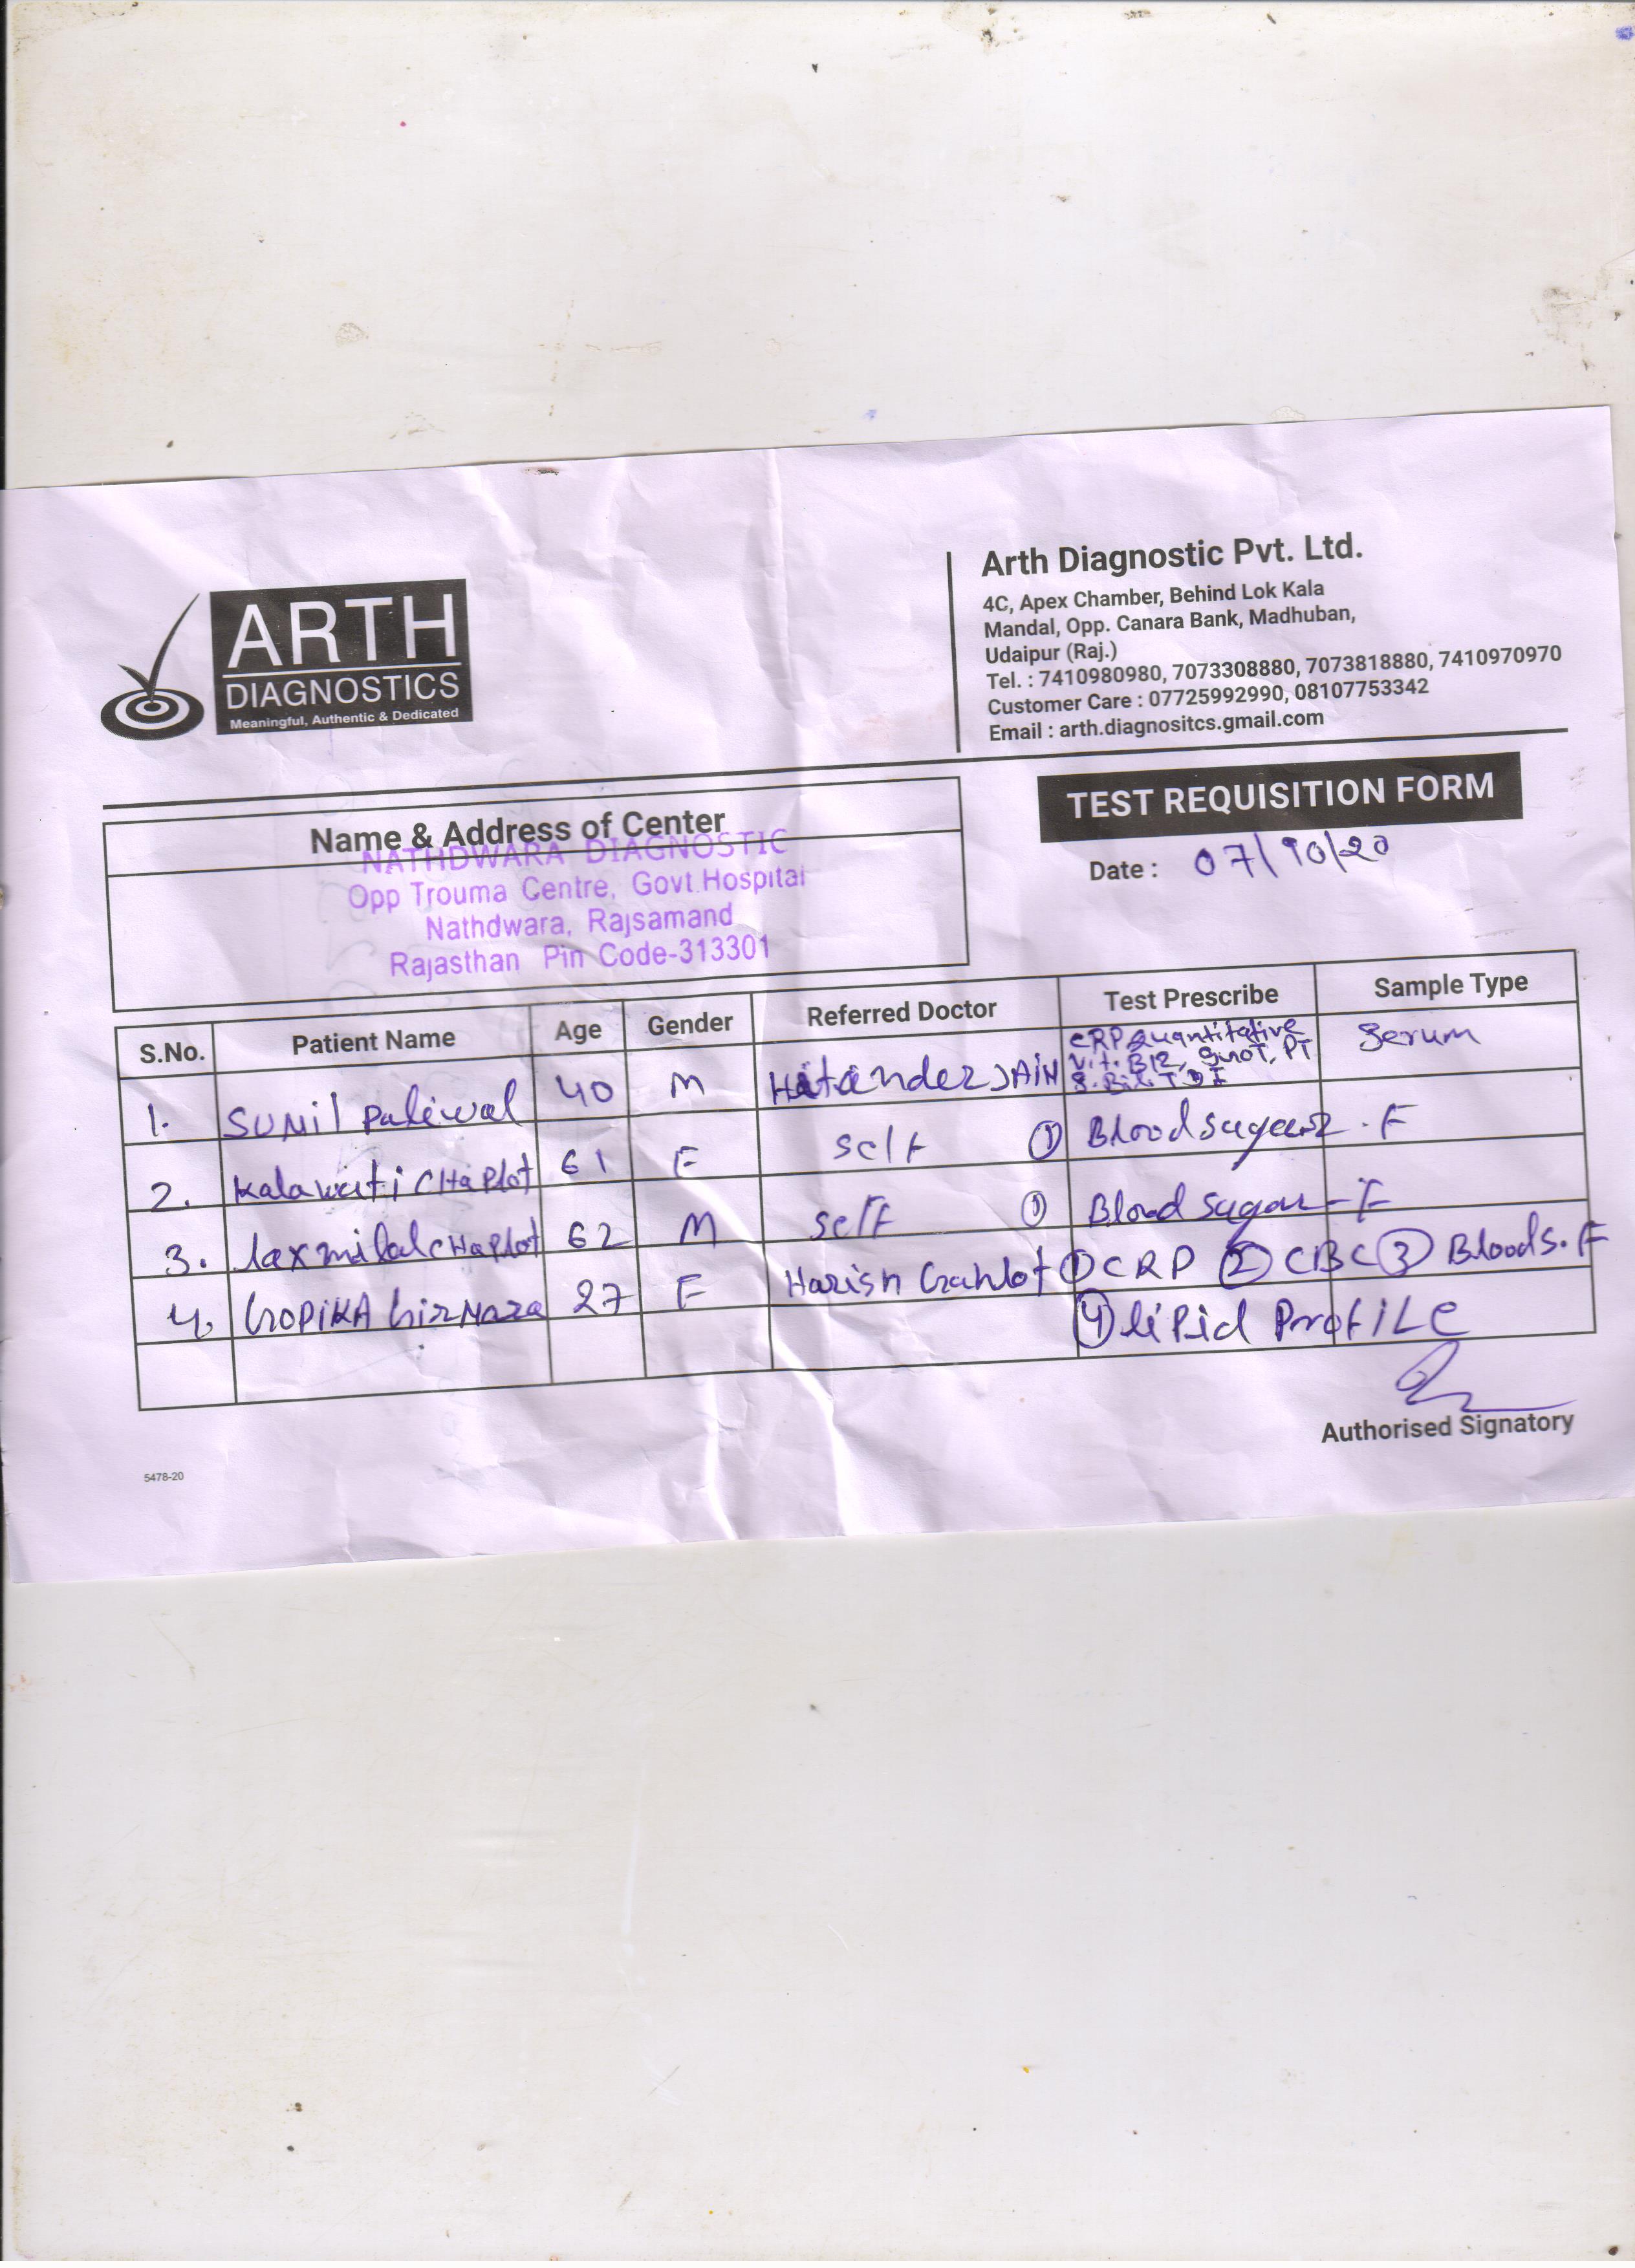 ARTH
DIAGNOSTICS
Meaningful, Authentic & Dedicated
Arth Diagnostic Pvt. Ltd.
4C, Apex Chamber, Behind Lok Kala
Mandal, Opp. Canara Bank, Madhuban,
Udaipur (Raj.)
Tel. : 7410980980, 7073308880, 7073818880, 7410970970
Customer Care : 07725992990, 08107753342
Email : arth.diagnositcs.gmail.com
Name & Address of Center
NATHDWARA DIAGNOSTIC
Opp Trouma Centre, Govt.Hospital
Nathdwara, Rajsamand
Rajasthan Pin Code-313301
TEST REQUISITION FORM
Date : 07/10/20
S.No. Patient Name Age Gender Referred Doctor Test Prescribe Sample Type
1. SUNil Paliwal 40 M JAiN CRP Quantitative Serum
Vit. B12, SGOT, PT
S. Bil. T D I
2. Kalawati CHaplot 61 F Self ① Blood sugar . F
3. laxmilal CHaplot 62 M Self ① Blood sugar - F
4. GOPiKA 27 F Harish Gahlot ① CRP ② CBC ③ Blood S. F
④ lipid ProfiLe
Authorised Signatory
5478-20